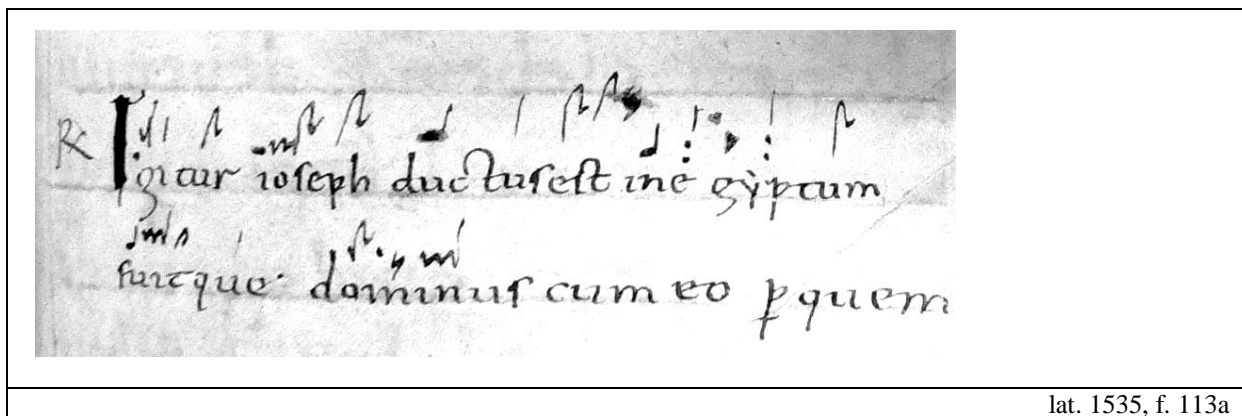 ℟ Igitur ioseph ductus est in e gyptum
fuitque· dominus cum eo p quem
lat. 1535, f. 113a